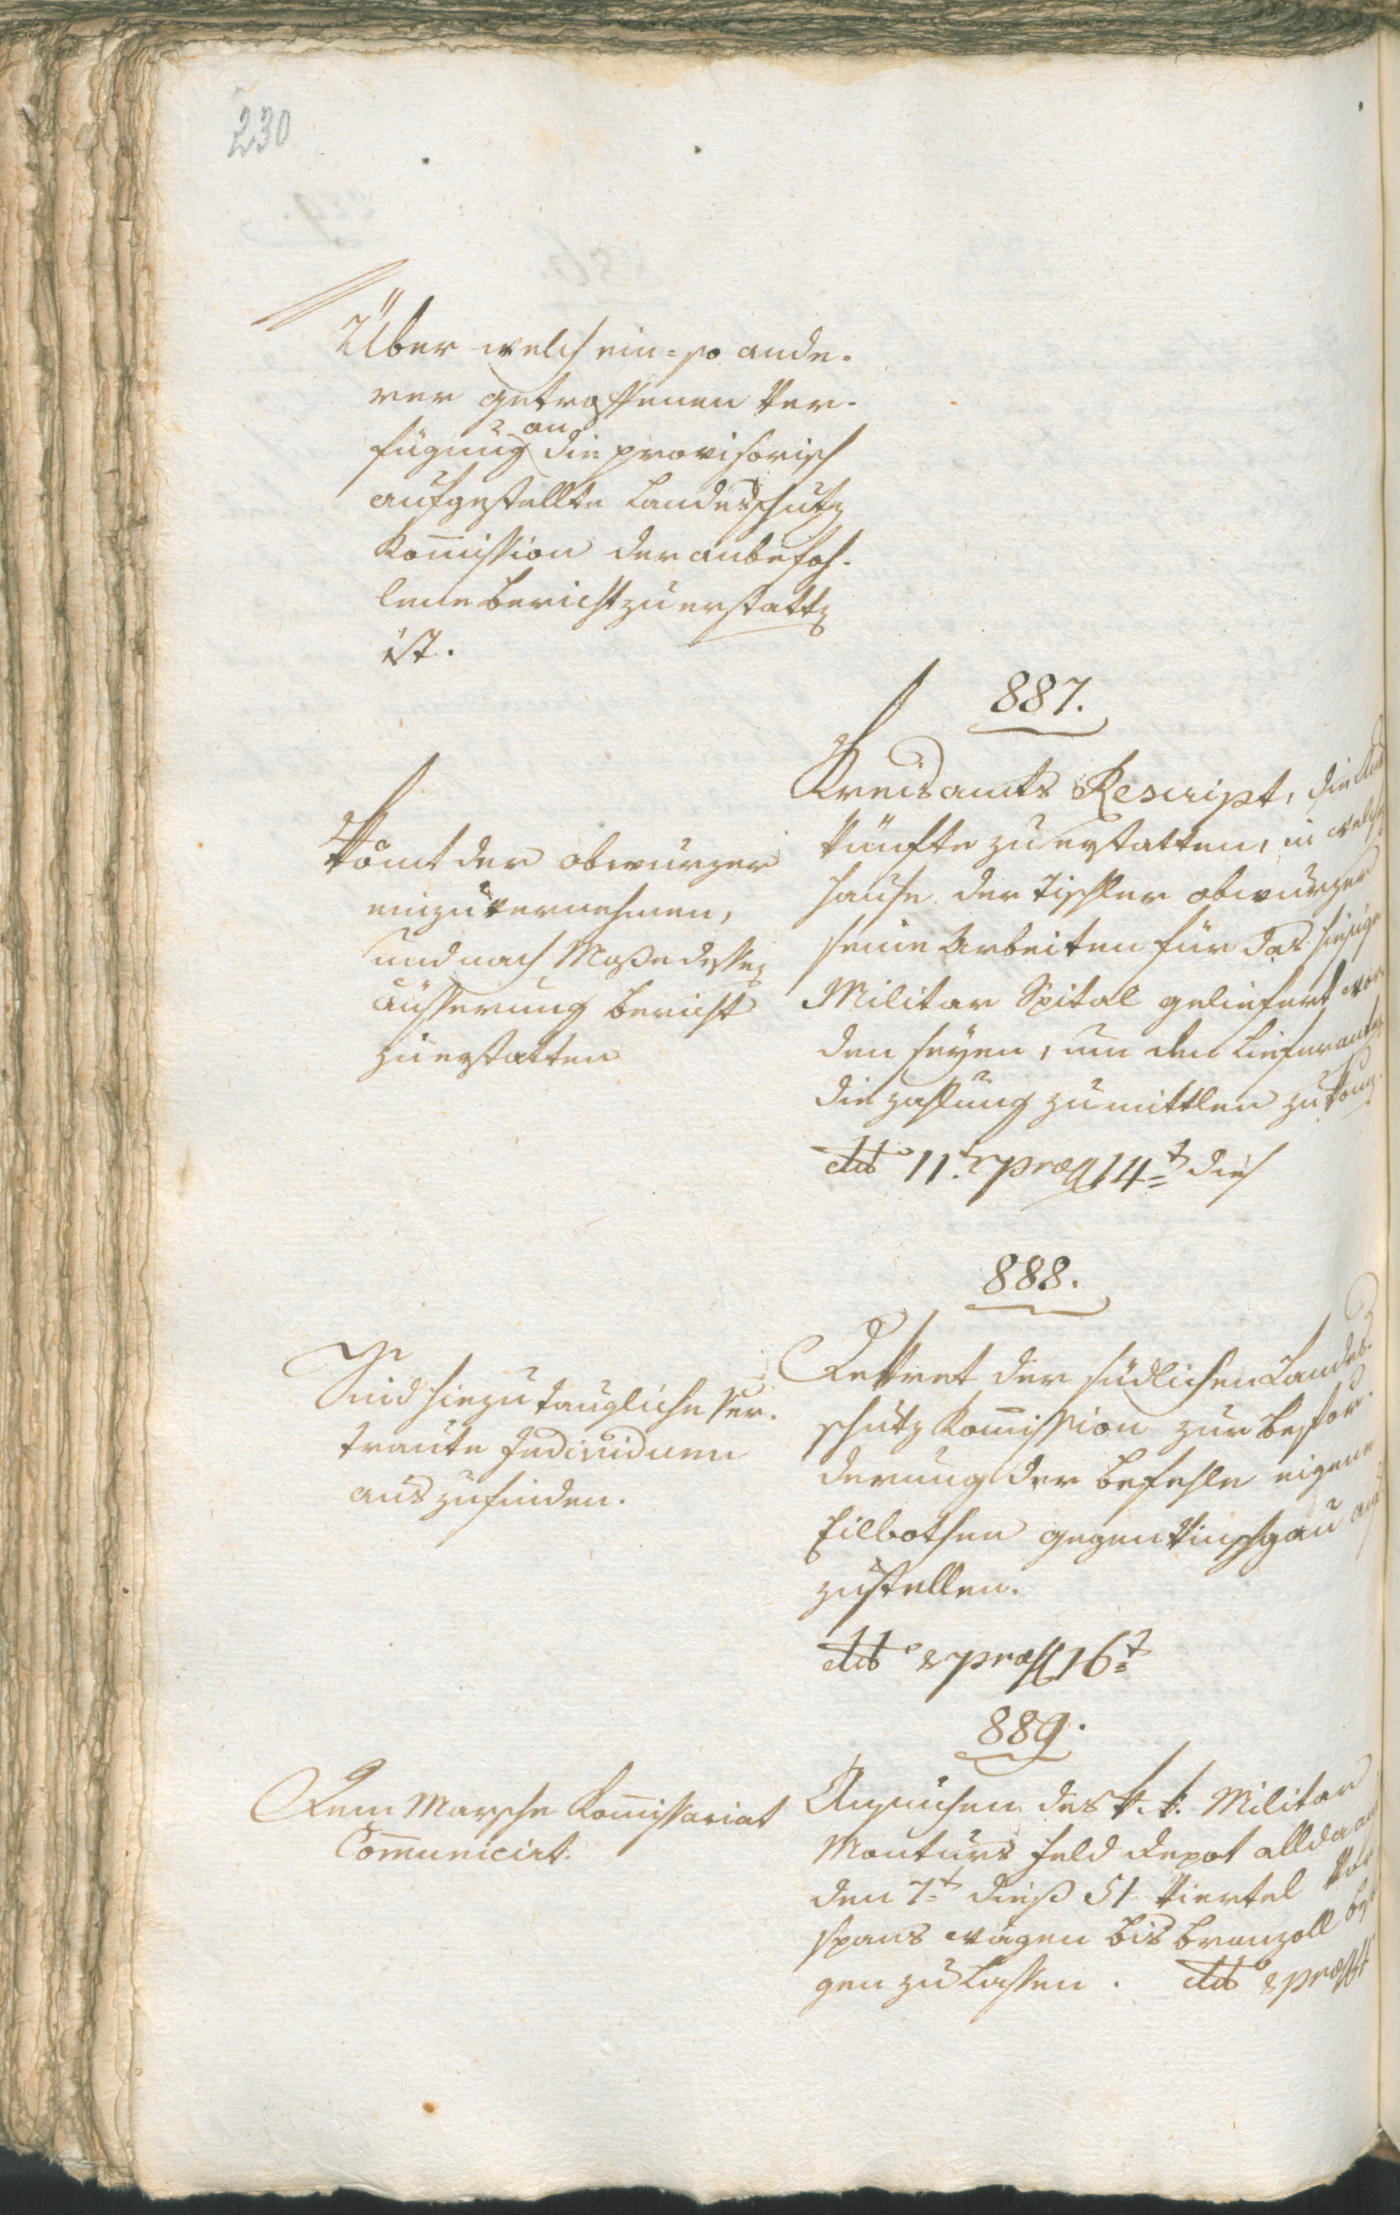 230
Über welch ein- so ande-
rer getroffenen Ver-
fügung an die provisorisch
aufgestellte Landesschutz
Kom̅ission der anbefoh-
lene Bericht zu erstatten
ist.
887.
Kreisamts Rescript, die Aus
künfte zu erstatten, in welch
Hause der Tischler Obwurzer
seine Arbeiten für das hiesige
Militar Spital geliefert wor
den seyen, um den Lieferanten
die Zahlung zumittlen zu kön̅en.
dto 11t præs 14t dies
Kömt der Obwurzer
einzuvernehmen,
und nach Maße dessen
äusserung Bericht
zu erstatten
888.
Dekret der südlichen Landes-
schutz Kom̅ission zur Beför-
derung der Befehle eigene
Eilbothen gegen Vinschgau auf
zustellen.
dto & præs 16t
Sind hiezu taugliche ver-
traute Individuen
auszufinden.
889.
Ansuchen des k. k. Militar
Monturs Feld Depot allda auf
den 7t dieß 51 Viertel Vor
spans wägen bis Branzoll
gen zu lassen. dto & præs
Dem Marsche Kom̅issariat
Com̅unicirt.